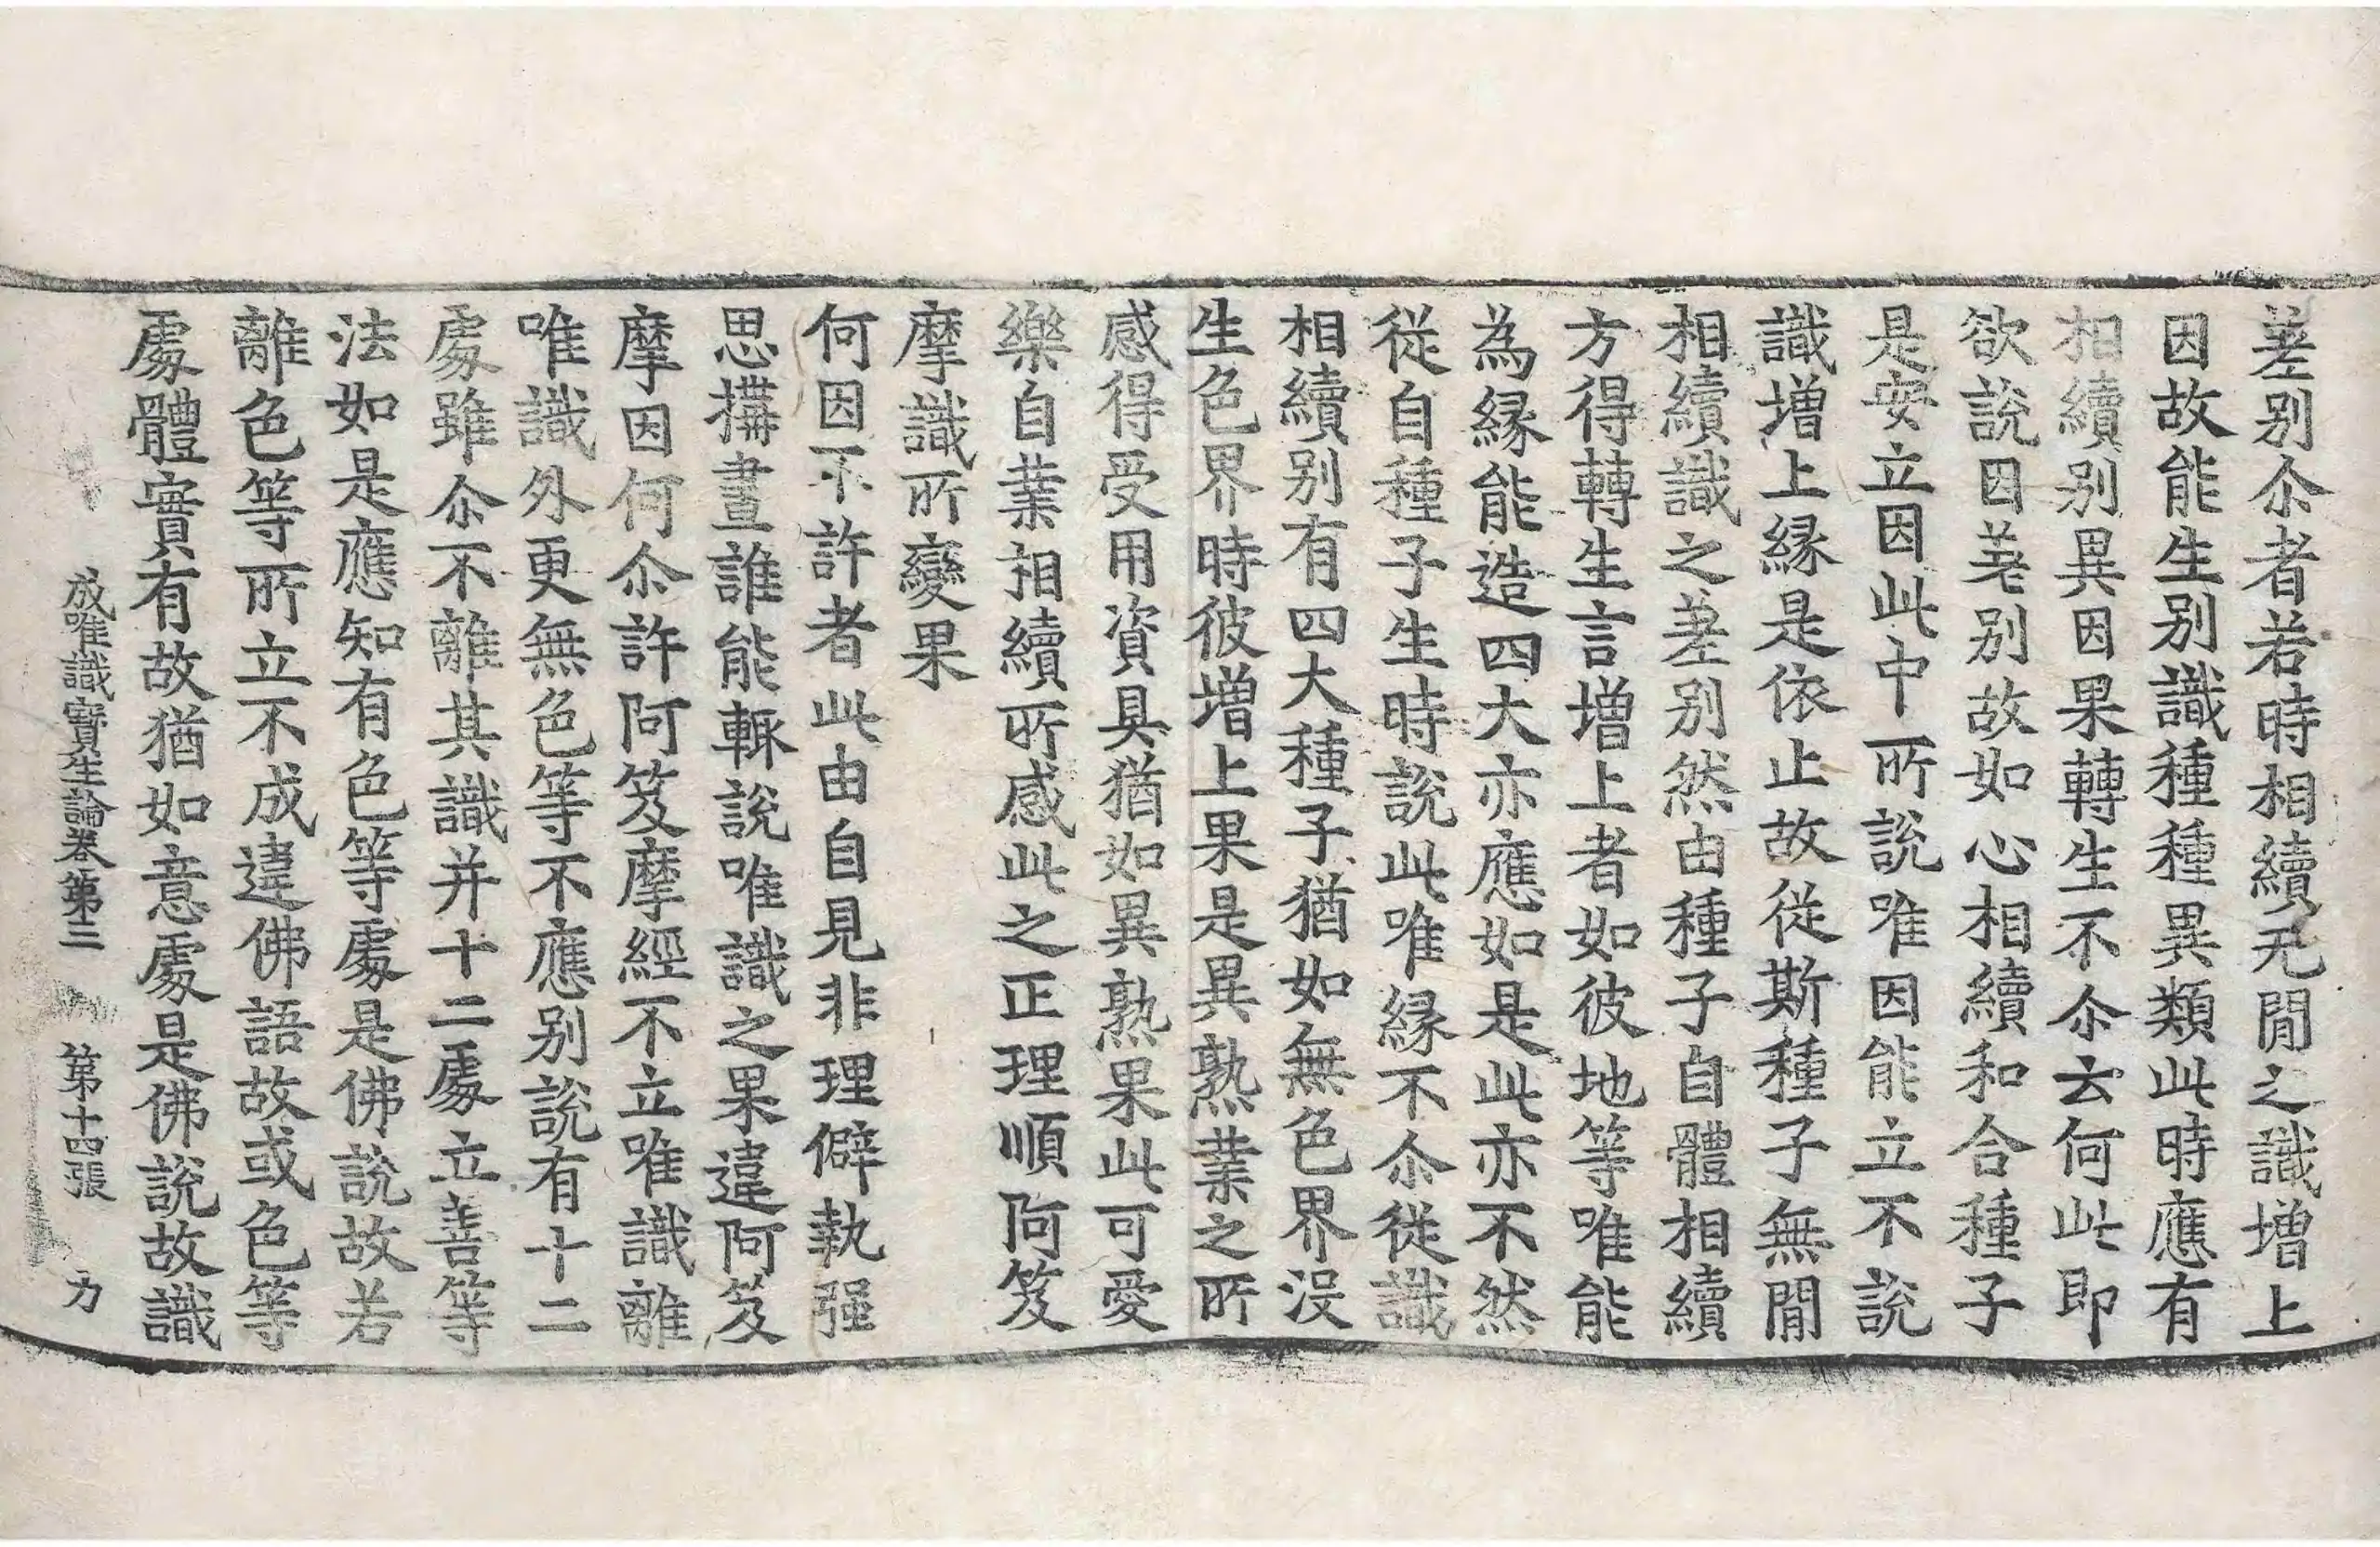 差别尒者若時相續无閒之識增上
因故能生别識種種異類此時應有
相續别異因果轉生不尒云何此即
欲說因差别故如心相續和合種子
是安立因此中所說唯因能立不說
識增上縁是依止故從斯種子無閒
相續識之差别然由種子自體相續
方得轉生言增上者如彼地等唯能
為縁能造四大亦應如是此亦不然
從自種子生時說此唯縁不尒從識
相續别有四大種子猶如無色界没
生色界時彼增上果是異熟業之所
感得受用資具猶如異熟果此可愛
樂自業相續所感此之正理順阿笈
摩識所變果
何因不許者此由自見非理僻執强
思搆畫誰能輙說唯識之果違阿笈
摩因何尒許阿笈摩經不立唯識離
唯識外更無色等不應别說有十二
處雖尒不離其識并十二處立善等
法如是應知有色等處是佛說故若
離色等所立不成違佛語故或色等
處體實有故猶如意處是佛說故識
成唯識寶生論卷第三　第十四張　力